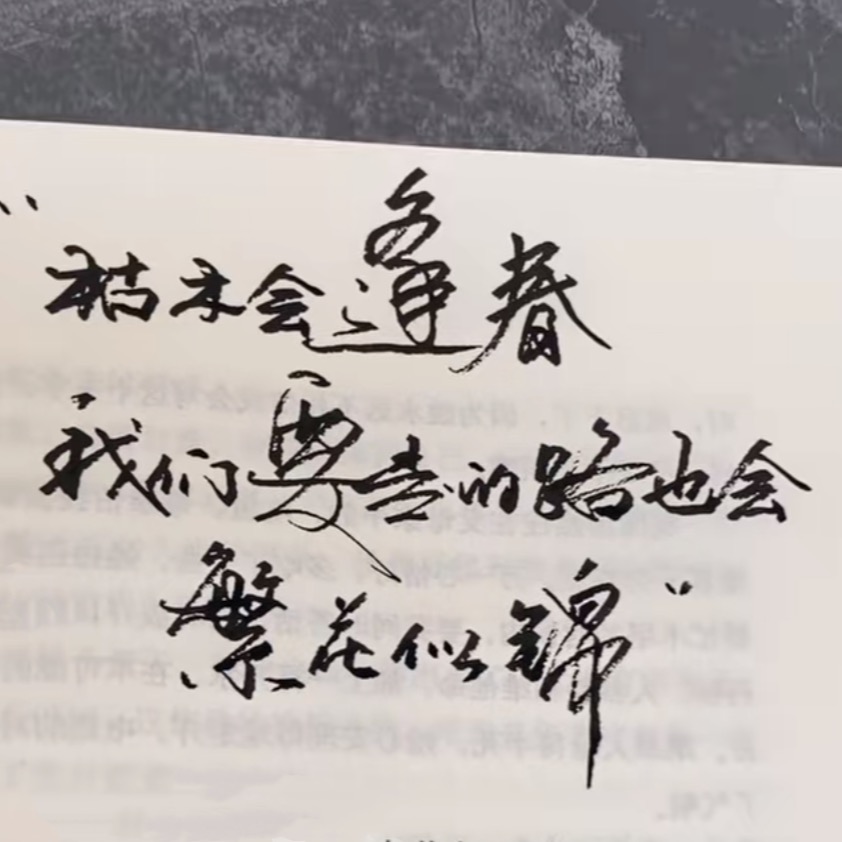 “枯木会逢春
我们要去的路也会
繁花似锦”